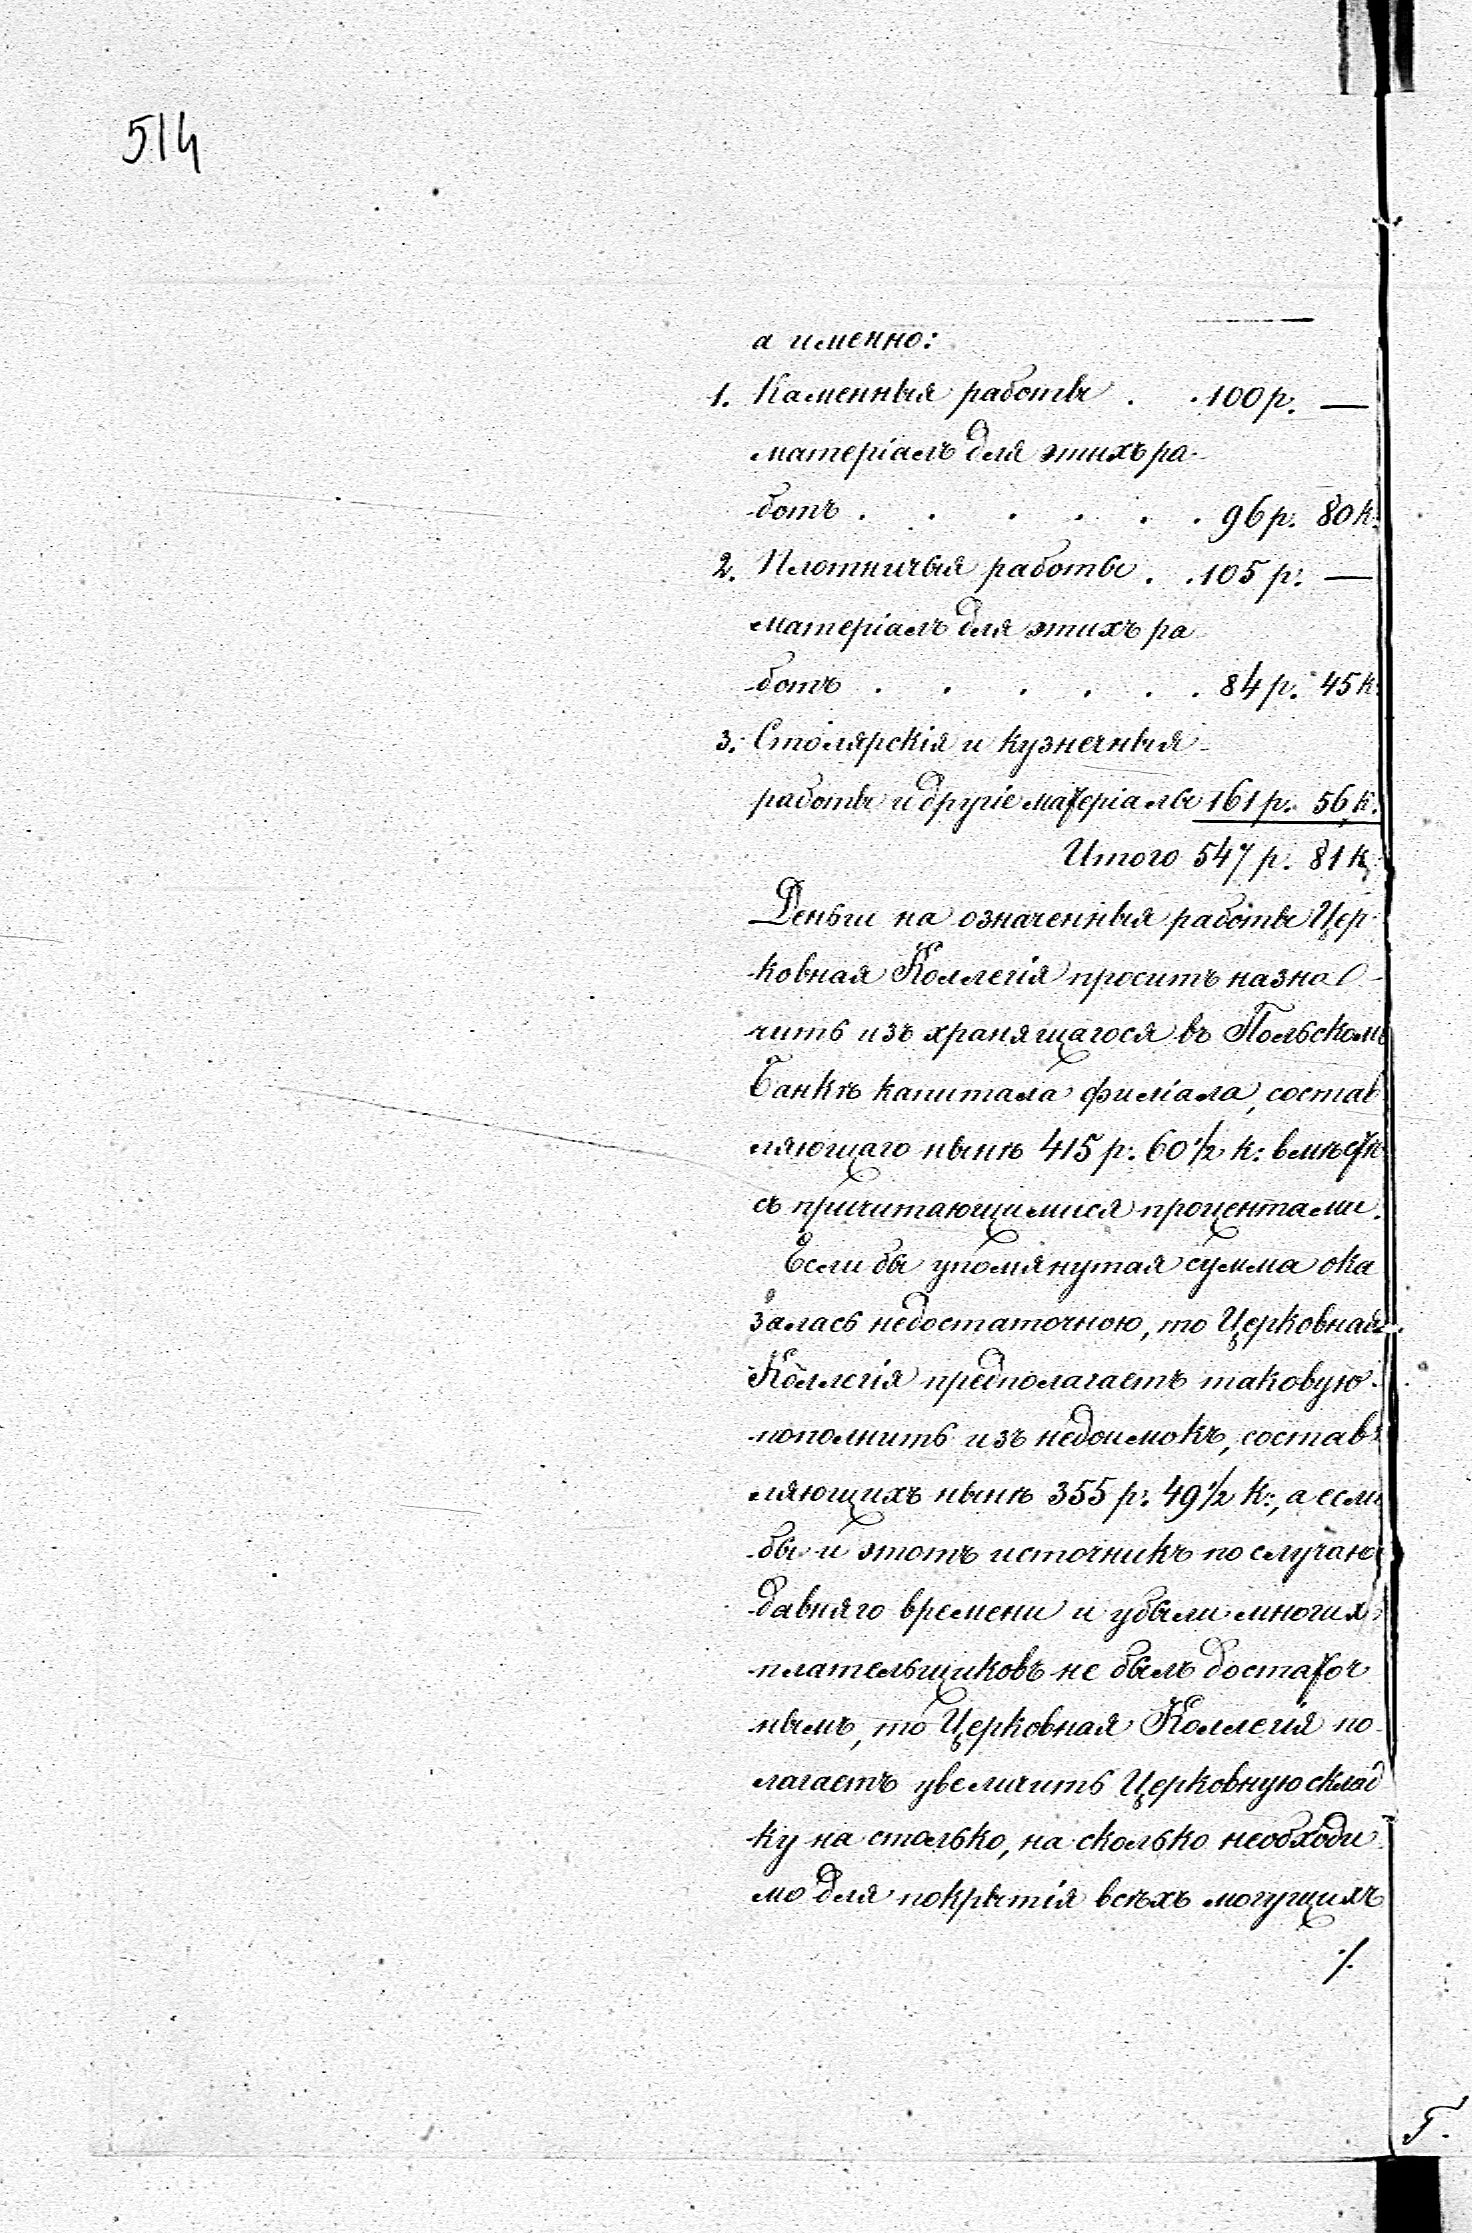 514
а именно:
1. Каменныя работы . . 100 р. —
матеріалъ для этихъ ра-
ботъ . . . . . . 96 р. 80 к.
2. Плотничьія работы . . 105 р. —
матеріалъ для этихъ ра
ботъ . . . . . . 84 р. 45 к.
3. Столярскія и кузнечныя
работы и другіе матеріалы 161 р. 56 к.
Итого 547 р. 81 к.
Деньги на означенныя работы Цер-
ковная Коллегія проситъ назна-
чить изъ хранящагося въ Польскомъ
Банкѣ капитала филіала, состав
ляющаго нынѣ 415 р. 60 1/2 к: вмѣстѣ
съ причитающимися процентами.
Если бы упомянутая сумма ока
залась недостаточною, то Церковная
Коллегія предполагаетъ таковую
пополнить изъ недоимокъ, состав
ляющихъ нынѣ 355 р. 49 1/2 к:, а если
бы и этотъ источникъ по случаю
давняго времени и убыли многихъ
плательщиковъ не былъ достаточ
нымъ, то Церковная Коллегія по
лагаетъ увеличить Церковную склад
ку на столько, на сколько необходи
мо для покрытія всѣхъ могущихъ
./.
Г.